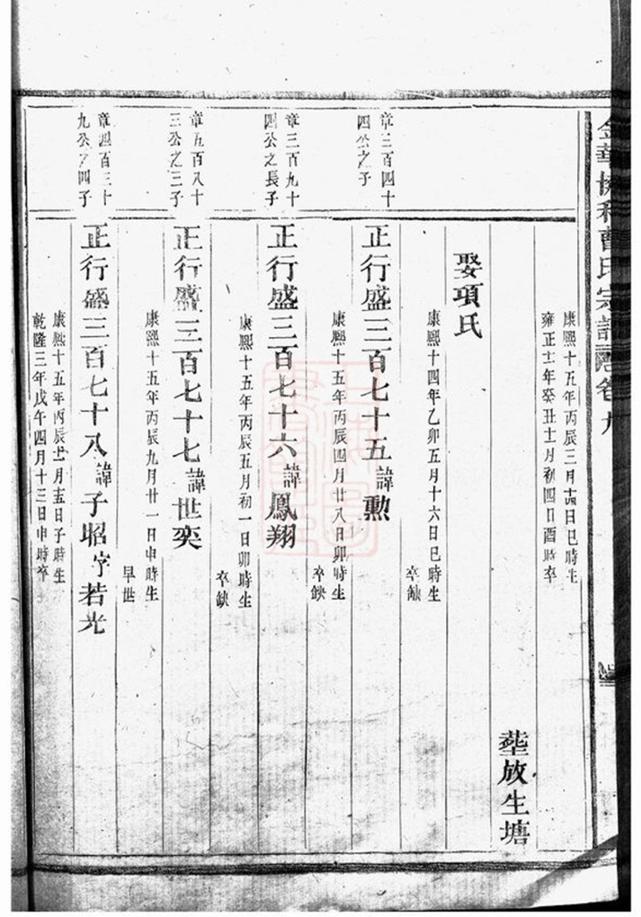 金華 曹氏宗譜 卷九
康熙十五年丙辰三月 日巳時生
雍正十一年癸丑十二月初四日酉時卒
塟放生塘
娶項氏
康熙十四年乙卯五月十六日巳時生
卒缺
章三百四十
四公之子
正行盛三百七十五諱勲
康熙十五年丙辰四月廿八日卯時生
卒缺
章三百九十
四公之長子
正行盛三百七十六諱鳳翔
康熙十五年丙辰五月初一日卯時生
卒缺
章五百八十
三公之三子
正行盛三百七十七諱世奕
康熙十五年丙辰九月廿一日申時生
早世
章四百三十
九公之四子
正行盛三百七十八諱子昭字若光
康熙十五年丙辰 月 日子時生
乾隆三年戊午四月十三日申時卒